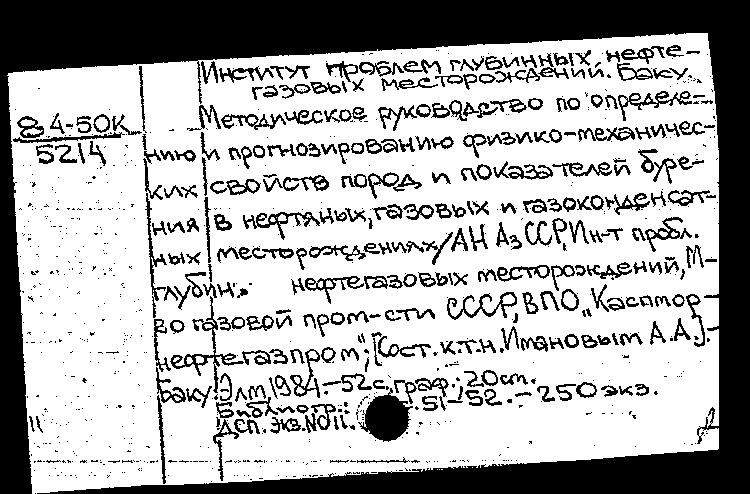 Институт проблем глубинных нефте-
газовых месторождений. Баку.
84-50К
5214
Методическое руководство по определе-
нию и прогнозированию физико-механичес-
ких свойств пород и показателей буре-
ния в нефтяных, газовых и газоконденсат-
ных месторождениях/АН АзССР, Ин-т пробл.
глубин. нефтегазовых месторождений, М-
во газовой пром-сти СССР, ВПО „Каспмор-
нефтегазпром"; [Сост. к.т.н. Имановым А.А.].-
Баку: Элм, 1984.-52 с, граф.; 20 см.
Библиогр.: 51-52.-250 экз.
ДСП. Экз. № 11.
11